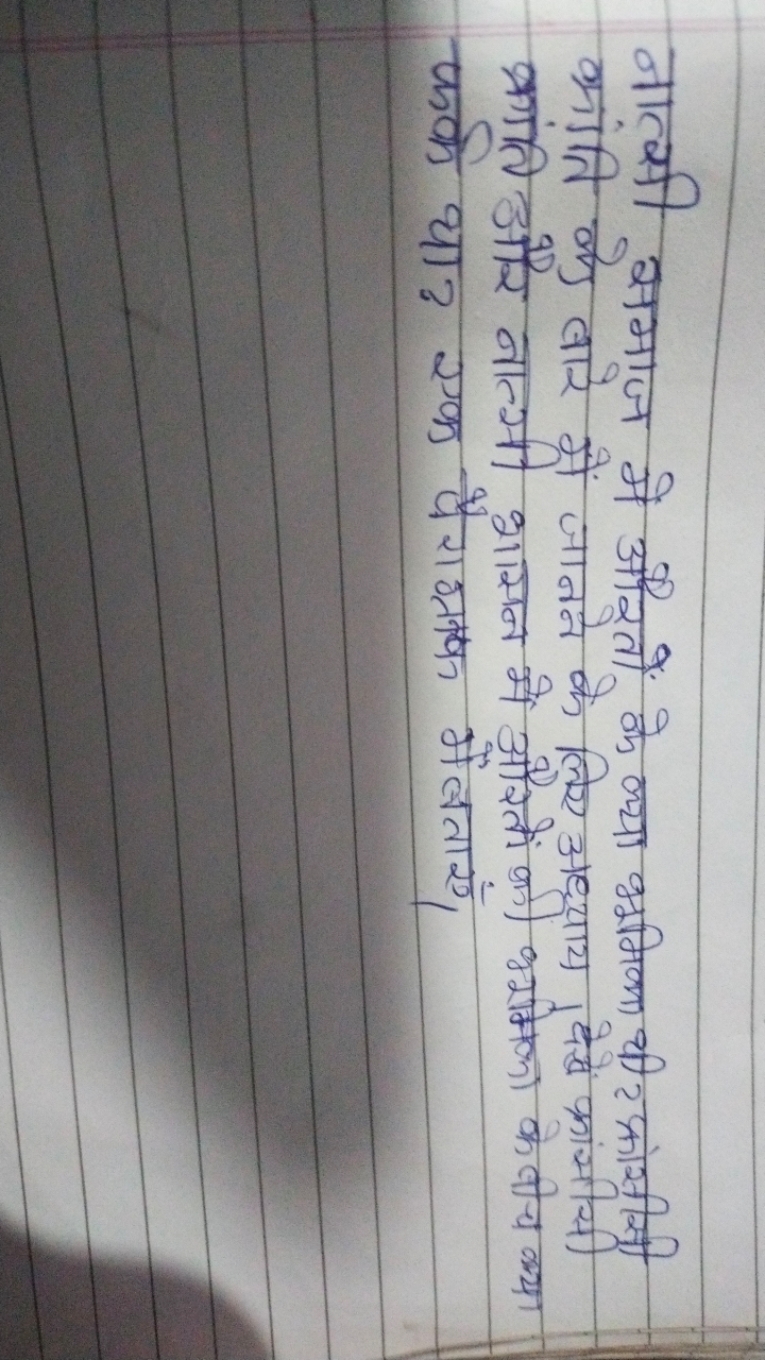 नात्सी समाज में औरतों के क्या भूमिका थी? फ्रांसीसी
क्रांति के बारे में जानने के लिए अध्याय 1 देखें फ्रांसीसी
क्रांति और नात्सी शासन में औरतों की भूमिका के बीच क्या
फर्क था? एक पैराग्राफ में बताएं,